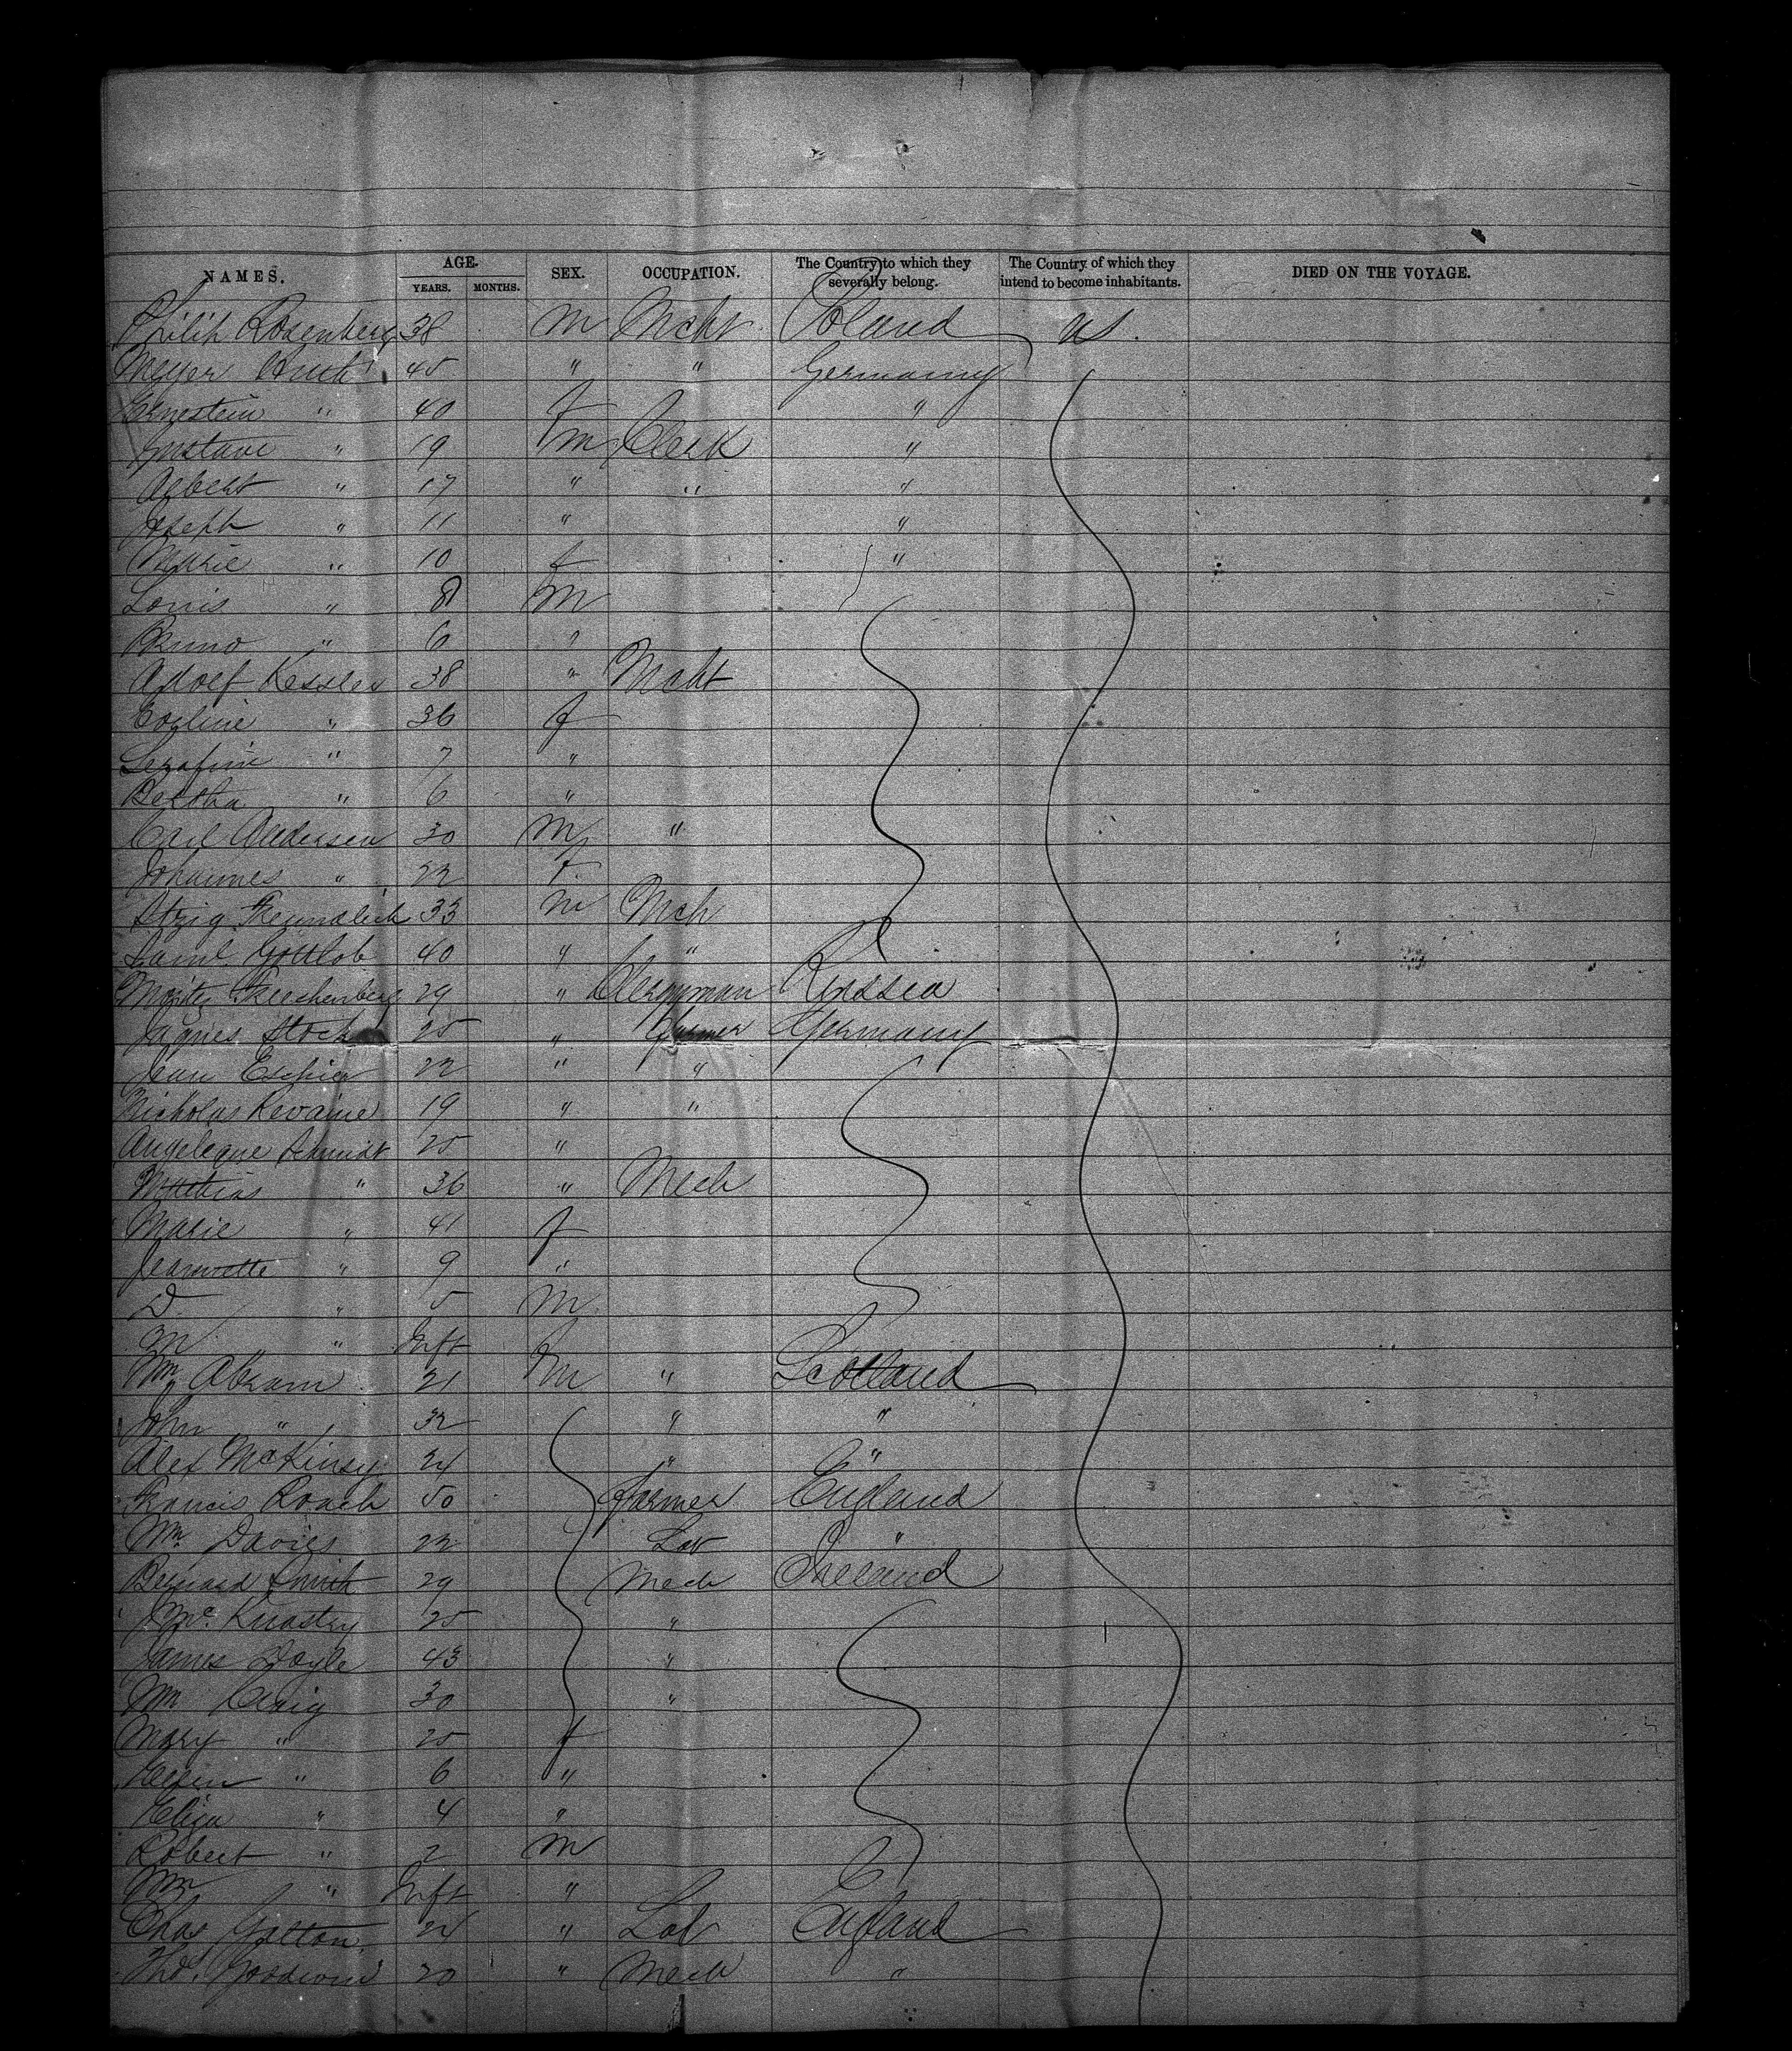 NAMES. AGE. SEX. OCCUPATION. The Country to which they severally belong. The Country of which they intend to become inhabitants. DIED ON THE VOYAGE.
YEARS. MONTHS.
Philip Rosenberg 38 m Mcht Poland US.
Meyer 45 " " Germany
Ernestein " 40 f "
Gustave " 19 m Clerk "
Albert " 17 " " "
Joseph " 11 " "
" 10 f "
Louis " 8 m
Bruno " 6 "
Adolf Kessler 38 " Mcht
" 36 f
Serafine " 7 "
Bertha " 6 "
Carl Andersen 30 m "
Johannes " 22 f
Itzig Freundlich 33 m Mch
Saml. Gottlob 40 " "
29 " Clergyman Russia
Stock 25 " Farmer Germany
Jean 22 " "
Nicholas Revaine 19 " "
Angeleque Schmidt 25 "
Matthias " 36 " Mech
Marie " 41 f
Jeannette " 9 "
D " 5 m
M " Inft
Wm Abram 21 m " Scotland
John " 32 " "
Alex McKinsy 24 " "
Francis Roach 50 Farmer England
Wm. Davies 22 Lab "
Bernard Smith 29 Mech Ireland
25 "
James Doyle 43 "
Wm Craig 30 "
Mary " 25 f
Ellen " 6 "
Eliza " 4 "
Robert " 2 m
Wm " Inft "
Chas 24 " Lab England
Thos. Goodwin 20 " Mech "